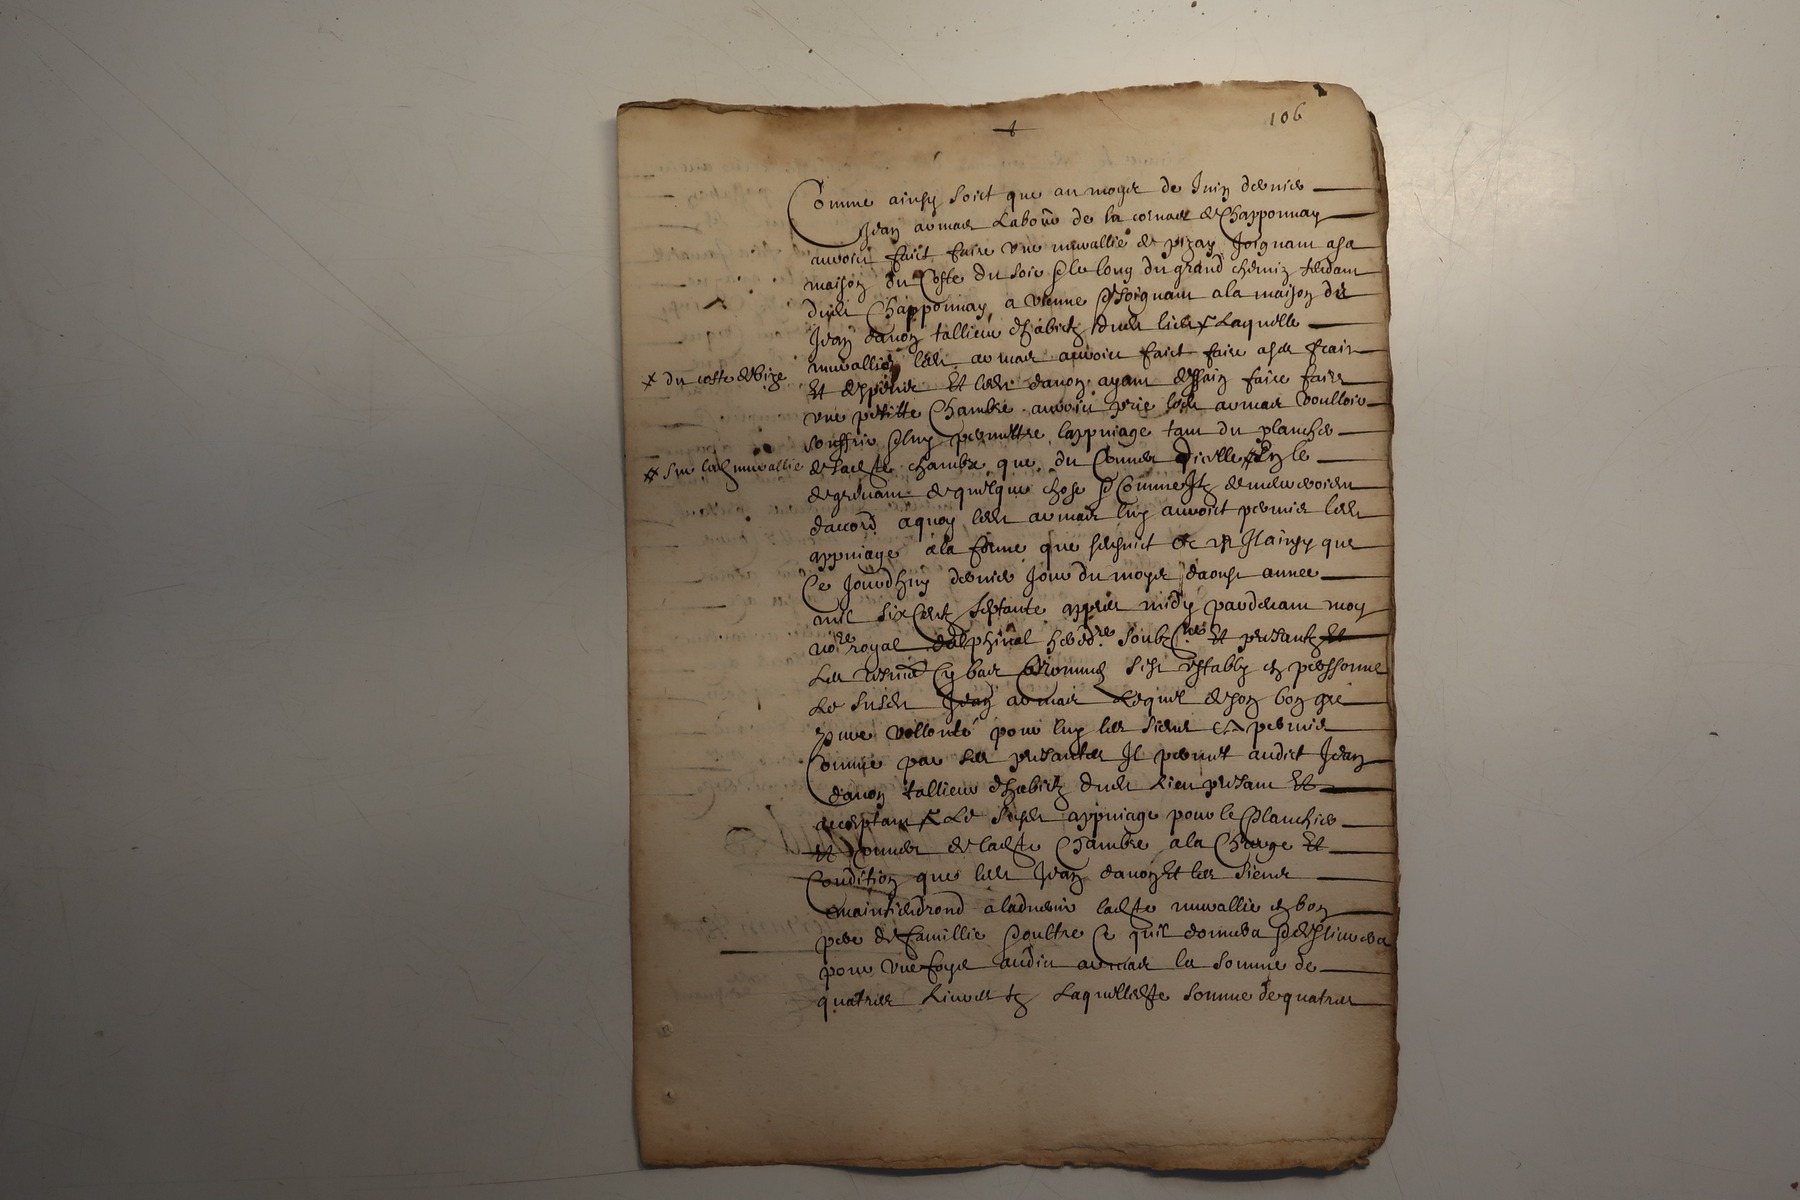 106
Comme ainsy soict que au moys de Juin dernier
Jean armand Labour de la comune de Chapponnay
auroict faict faire une murallie de pizay Joignant a sa
maison du Coste du soir & le long du grand chemin tendant
dudt Chapponnay a vienne & Joignant a la maison de
Jean danon tallieur dhabictz dudt lieu x Laquelle
murallie ledt armand auroict faict faire a ses frais
x du coste de bize
Et despens Et ledt danon ayant dessain faire faire
une petitte Chambre auroict prie ledt armand voulloir
souffrir & luy permettre lappuiage tant du plancher
xx sur lad murallie
de ladte chambre que du Couvert dicelle xx En le
de quelque chose & Comme Ilz demeureroient
daccord a quoy ledt armand luy auroict permis ledt
appuiage a la forme que sensuict Il ainsy que
Ce Jourdhuy dernier Jour du moys daoust annee
mil six Centz septante appres midy pardevant moy
nore royal dalphinal soubzne Et presantz
Les tesmoins Cy bas nommes sest estably en perssonne
Le susdt Jean armand Lequel de son bon gre
pure vollonte pour luy les siens permis
Comme par ses presantes Il permet audict Jean
danon tallieur dhabictz dudt Lieu presant Et
acceptant Le susdt appuiage pour le plancher
Et Couvert de ladte Chambre a la Charge Et
Condition que ledt Jean danon Et les siens
maintiendront a ladvenir ladte murallie en bon
pere de famillie & oultre Ce quil donnera & deslivrera
pour une foys audit armand la somme de
quatres Livres tz Laquelle dte somme de quatres